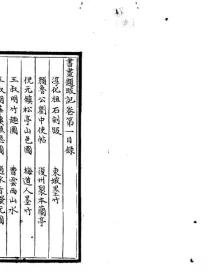 書畫題跋記卷第一目錄
淳化祖石刻跋
東坡墨竹
顏魯公劉中使帖
復州裂本蘭亭
倪元鎮松亭山色圖
梅道人墨竹
王叔明竹趣圖
曹雲西山水
王叔明